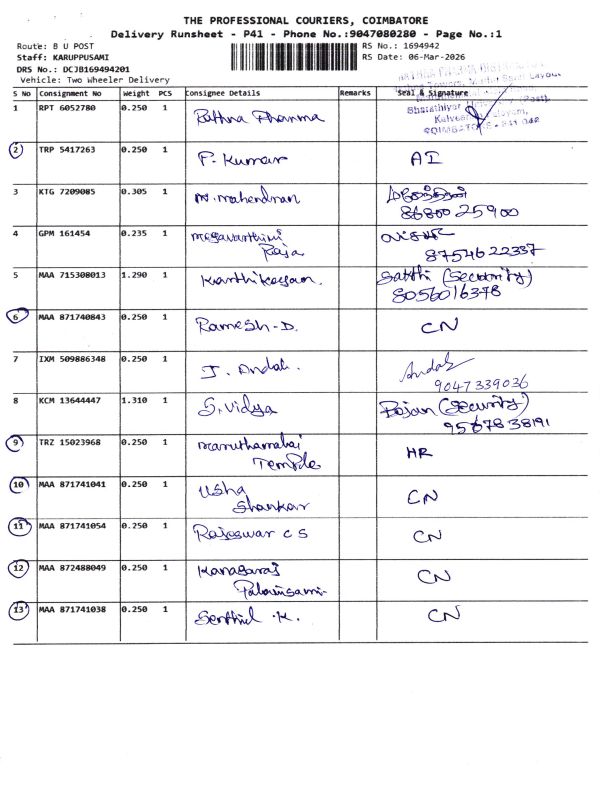 THE PROFESSIONAL COURIERS, COIMBATORE
Delivery Runsheet - P41 - Phone No.:9047080280 - Page No.:1
Route: B U POST
Staff: KARUPPUSAMI
DRS No.: DCJB169494201
Vehicle: Two Wheeler Delivery
RS No.: 1694942
RS Date: 06-Mar-2026
S No Consignment No Weight PCS Consignee Details Remarks Seal & Signature
1 RPT 6052780 0.250 1 Rathna Dhamma
COIMBATORE - 641 046
2 TRP 5417263 0.250 1 P. Kumar AI
3 KTG 7209085 0.305 1 M. Mahendran
86800 25900
4 GPM 161454 0.235 1
Raja 8754622337
5 MAA 715308013 1.290 1 Karthikeyan. Satthi (Security)
8056016378
6 MAA 871740843 0.250 1 Ramesh-D. CN
7 IXM 509886348 0.250 1 J. Andal. Andal
9047339036
8 KCM 13644447 1.310 1 S. Vidya Rajan (Security)
95678 38191
9 TRZ 15023968 0.250 1 Maruthamalai
Temple HR
10 MAA 871741041 0.250 1 Usha
Shankar CN
11 MAA 871741054 0.250 1 Rajeswar C S CN
12 MAA 872488049 0.250 1 Kanagaraj
Palanisami CN
13 MAA 871741038 0.250 1 Senthil .K. CN